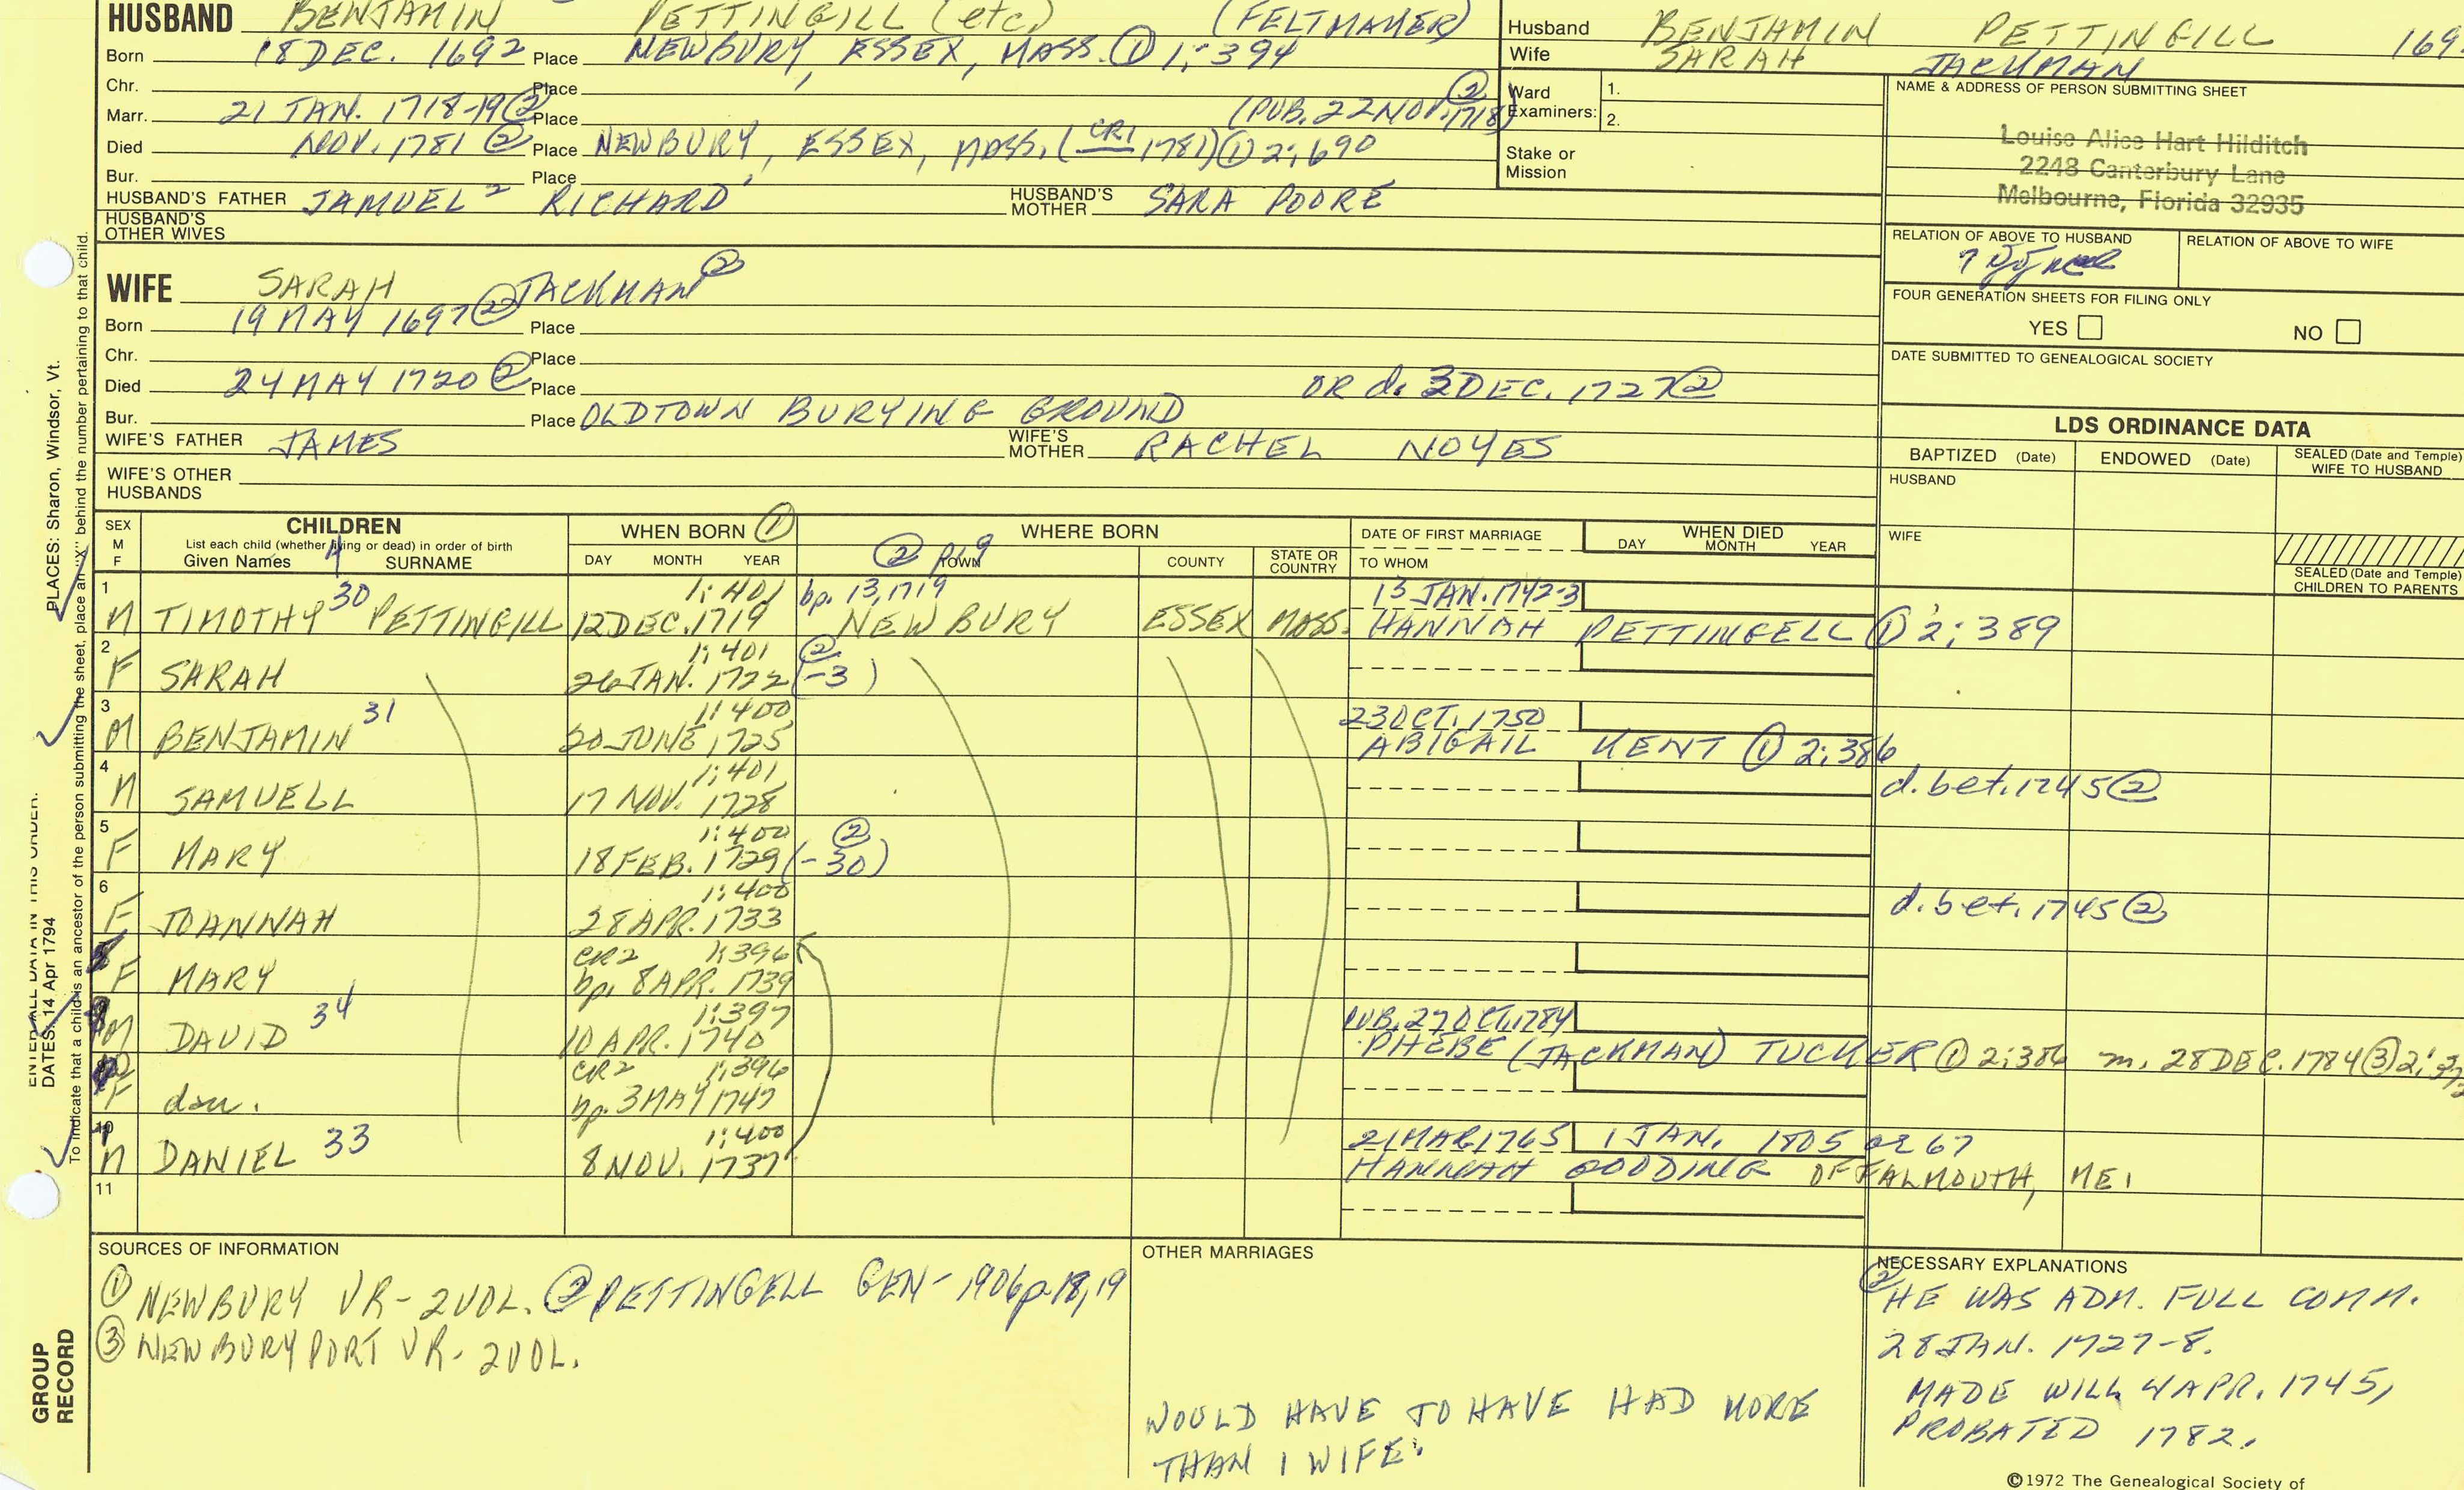 HUSBAND BENJAMIN PETTINGILL (etc) (FELTMAKER)
Born 18 DEC. 1692 Place NEWBURY, ESSEX, MASS. ① 1:394
Chr. Place
Marr. 21 JAN. 1718-19 ② Place (PUB. 22 NOV. 1718) ②
Died NOV. 1781 ② Place NEWBURY, ESSEX, MASS. (CR1 1781) ① 2:690
Bur. Place
HUSBAND'S FATHER SAMUEL² RICHARD¹ HUSBAND'S MOTHER SARA POORE
HUSBAND'S OTHER WIVES
Husband BENJAMIN PETTINGILL 169
Wife SARAH JACKMAN
Ward Examiners: 1.
2.
Stake or Mission
NAME & ADDRESS OF PERSON SUBMITTING SHEET
Louise Alice Hart Hilditch
2248 Canterbury Lane
Melbourne, Florida 32935
RELATION OF ABOVE TO HUSBAND RELATION OF ABOVE TO WIFE
FOUR GENERATION SHEETS FOR FILING ONLY
YES NO
DATE SUBMITTED TO GENEALOGICAL SOCIETY
WIFE SARAH JACKMAN ②
Born 19 MAY 1697 ② Place
Chr. Place
Died 24 MAY 1720 ② Place OR d. 3 DEC. 1727 ②
Bur. Place OLDTOWN BURYING GROUND
WIFE'S FATHER JAMES WIFE'S MOTHER RACHEL NOYES
WIFE'S OTHER HUSBANDS
LDS ORDINANCE DATA
BAPTIZED (Date) ENDOWED (Date) SEALED (Date and Temple) WIFE TO HUSBAND
HUSBAND
WIFE
SEALED (Date and Temple) CHILDREN TO PARENTS
SEX M F CHILDREN WHEN BORN ① WHERE BORN DATE OF FIRST MARRIAGE WHEN DIED
List each child (whether living or dead) in order of birth
Given Names SURNAME DAY MONTH YEAR ② p19 TOWN COUNTY STATE OR COUNTRY TO WHOM DAY MONTH YEAR
1 1:401 bp. 13, 1719 13 JAN. 1742-3
M TIMOTHY 30 PETTINGILL 12 DEC. 1719 NEWBURY ESSEX MASS. HANNAH PETTINGELL ① 2:389
2 1:401 ②
F SARAH 26 JAN. 1722 (-3)
3 1:400 23 OCT. 1750
M BENJAMIN 31 20 JUNE 1725 ABIGAIL KENT ① 2:386
4 1:401
M SAMUELL 17 NOV. 1728 d. bet. 1745 ②
5 1:400 ②
F MARY 18 FEB. 1729 (-30)
6 1:400
F JOANNAH 28 APR. 1733 d. bet. 1745 ②
CR2 1:396
F MARY bp. 8 APR. 1739
1:397 PUB. 27 OCT. 1784
M DAVID 34 10 APR. 1740 PHEBE (JACKMAN) TUCKER ① 2:386 m. 28 DEC. 1784 ③ 2:
CR2 1:396
F dau. bp. 3 MAY 1747
1:400 21 MAR 1765 1 JAN. 1805 or 67
M DANIEL 33 8 NOV. 1737 HANNAH GOODING OF FALMOUTH, ME.
11
SOURCES OF INFORMATION
① NEWBURY VR - 2 VOL. ② PETTINGELL GEN - 1906 p. 18, 19
③ NEWBURYPORT VR - 2 VOL.
OTHER MARRIAGES
WOULD HAVE TO HAVE HAD MORE
THAN 1 WIFE.
NECESSARY EXPLANATIONS
② HE WAS ADM. FULL COMM.
28 JAN. 1727-8.
MADE WILL 4 APR. 1745,
PROBATED 1782.
©1972 The Genealogical Society of
PLACES: Sharon, Windsor, Vt.
ENTER ALL DATA IN THIS ORDER:
DATES: 14 Apr 1794
To indicate that a child is an ancestor of the person submitting the sheet, place an "X" behind the number pertaining to that child.
GROUP
RECORD